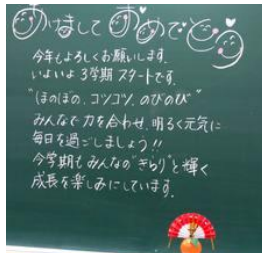 あけまして おめでとう
今年もよろしくお願いします。
いよいよ3学期スタートです。
"ほのぼの、コツコツ、のびのび"
みんなで力を合わせ、明るく元気に
毎日を過ごしましょう!!
今学期もみんなの"きらり"と輝く
成長を楽しみにしています。